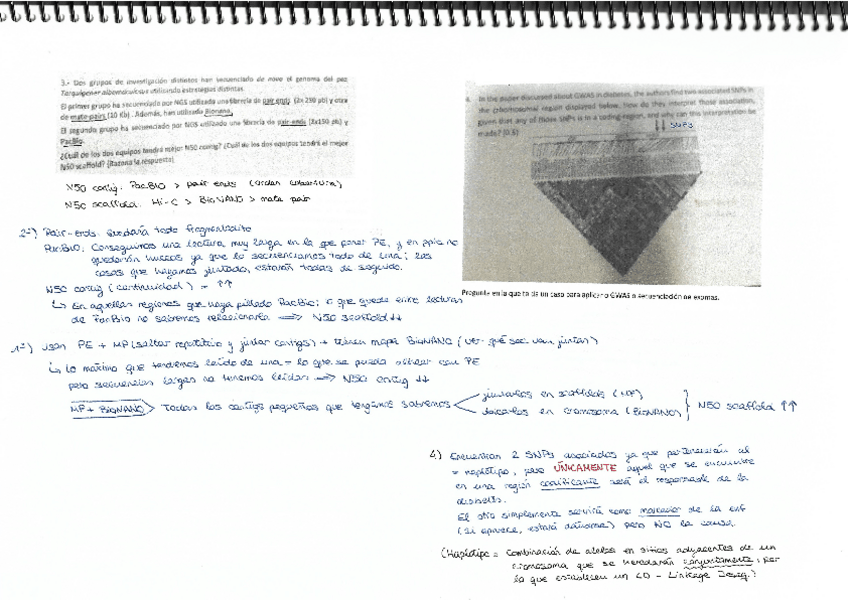 3.- Dos grupos de investigación distintos han secuenciado de novo el genoma del pez
Torquigener albomaculosus utilizando estrategias distintas.
El primer grupo ha secuenciado por NGS utilizando una librería de pair ends (2x 250 pb) y otra
de mate-pairs (10 Kb). Además, han utilizado Bionano.
El segundo grupo ha secuenciado por NGS utilizando una librería de pair-ends (2x150 pb) y
PacBio.
¿Cuál de los dos equipos tendrá mejor N50 contig? ¿Cuál de los dos equipos tendrá el mejor
N50 scaffold? (Razona la respuesta)
N50 contig: PacBio > pair ends
N50 scaffold: Hi-C > BioNANO > mate pair
2º) Pair-ends: quedará todo fragmentadito
PacBio: Conseguimos una lectura muy larga en la que poner PE, y en ppio no
quedarán huecos ya que lo secuenciamos todo de una; las
cosas que hayamos juntado, estarán todas de seguido.
N50 contig (continuidad) = ↑↑
↳ En aquellas regiones que haya pillado PacBio; o que quede entre lecturas
de PacBio no sabremos relacionarla ⟹ N50 scaffold ↓↓
1º) Usan PE + MP (saltar repetitivo y juntar contigs) + tienen mapa BioNANO (ver qué sec. van juntas)
↳ Lo máximo que tendremos leído de una = lo que se pueda obtener con PE
pero secuencias largas no tenemos leídas ⟹ N50 contig ↓↓
MP + BioNANO Todos los contigs pequeños que tengamos sabremos
juntarlos en scaffolds (MP)
ubicarlos en cromosoma (BioNANO)
N50 scaffold ↑↑
4. In the paper discussed about GWAS in diabetes, the authors find two associated SNPs in
the chromosomal region displayed below, how do they interpret those association,
given that any of those SNPs is in a coding region, and why can this interpretation be
made? (0.5)
↓↓ SNPs
Pregunta en la que te da un caso para aplicar o GWAS o secuenciación de exomas.
4) Encuentran 2 SNPs asociados ya que pertenecían al
= haplotipo, pero ÚNICAMENTE aquel que se encuentre
en una región codificante será el responsable de la
diabetes.
El otro simplemente servirá como marcador de la enf
(si aparece, estará enferma) pero NO la causa
(Haplotipo = Combinación de alelos en sitios adyacentes de un
cromosoma que se heredarán conjuntamente, por
lo que establecen un LD - Linkage Deseq.)